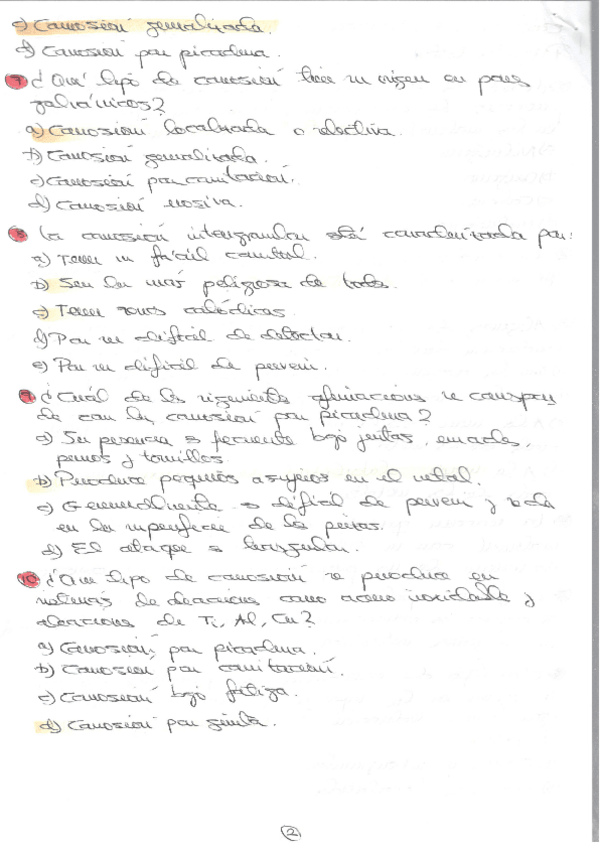 c) Corrosión generalizada.
d) Corrosión por picadura.
7) ¿Qué tipo de corrosión tiene su origen en pares
galvánicos?
a) Corrosión localizada o selectiva.
b) Corrosión generalizada.
c) Corrosión por cavitación.
d) Corrosión erosiva.
8 La corrosión intergranular está caracterizada por:
a) Tener un fácil control.
b) Ser la más peligrosa de todas.
c) Tener zonas catódicas.
d) Por su difícil de detectar.
e) Por su difícil de prevenir.
9 ¿Cuál de las siguientes afirmaciones se correspon
de con la corrosión por picadura?
a) Su presencia es frecuente bajo juntas,
pernos y tornillos.
b) Produce pequeños agujeros en el metal.
c) Generalmente es difícil de prevenir y
en la superficie de las piezas.
d) El ataque es
10 ¿Qué tipo de corrosión se produce en
sistemas de aleaciones como acero inoxidable y
aleaciones de Ti, Al, Cu?
a) Corrosión por picadura.
b) Corrosión por cavitación.
c) Corrosión bajo fatiga.
d) Corrosión por grieta.
2